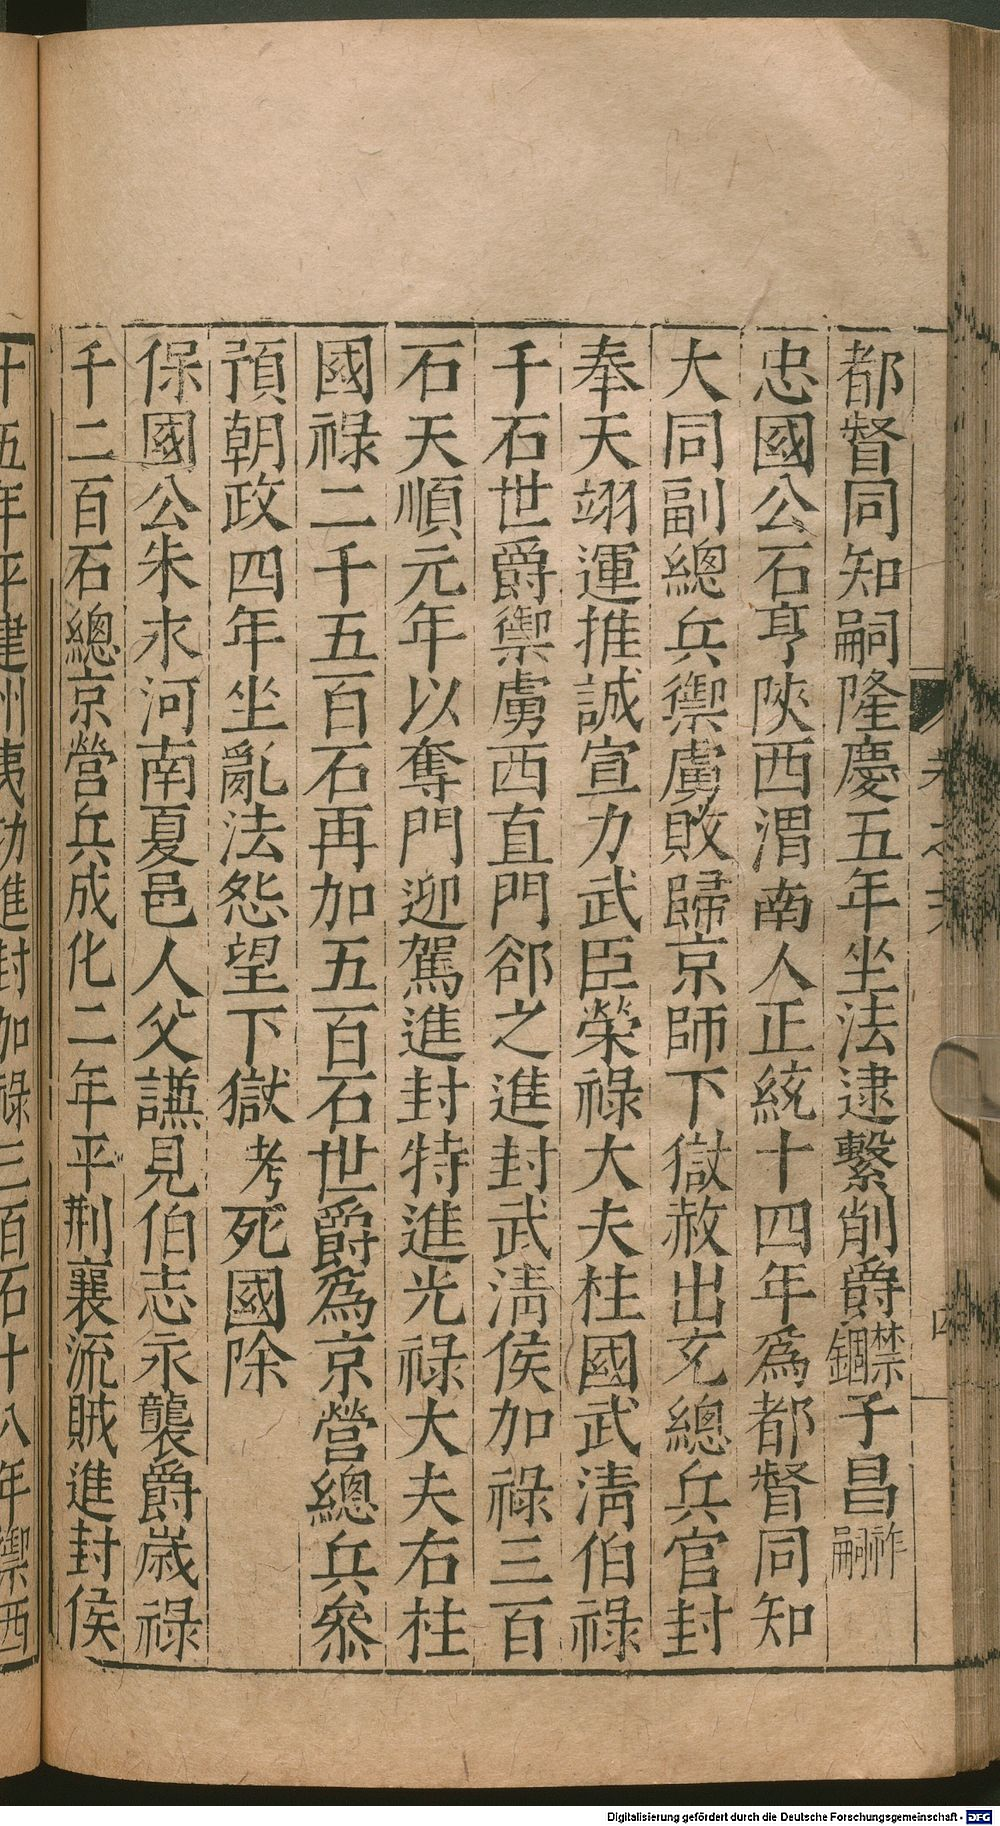 都督同知嗣隆慶五年坐法逮繫削爵禁錮子昌祚嗣
忠國公石亨陝西渭南人正統十四年爲都督同知
大同副總兵禦虜敗歸京師下獄赦出充總兵官封
奉天翊運推誠宣力武臣榮祿大夫柱國武淸伯祿
千石世爵禦虜西直門郤之進封武淸侯加祿三百
石天順元年以奪門迎駕進封特進光祿大夫右柱
國祿二千五百石再加五百石世爵爲京營總兵叅
預朝政四年坐亂法怨望下獄考死國除
保國公朱永河南夏邑人父謙見伯志永襲爵歲祿
千二百石總京營兵成化二年平荆襄流賊進封侯
十五年平建州夷功進封加祿三百石十八年禦西
卷之六
四
Digitalisierung gefördert durch die Deutsche Forschungsgemeinschaft - DFG